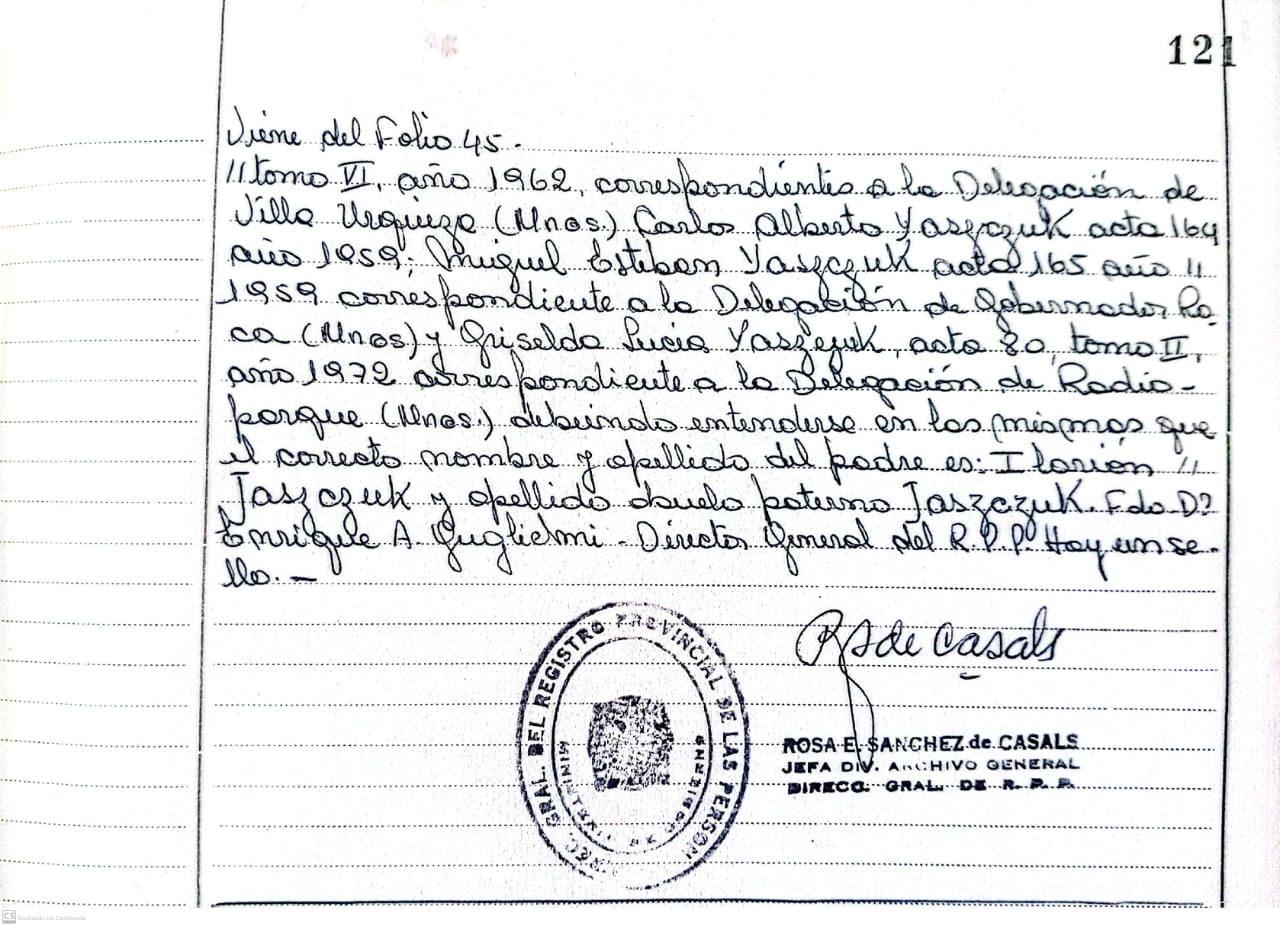 121
Viene del Folio 45.
//tomo VI, año 1962, correspondientes a la Delegación de
Villa Urquiza (Mnes.) Carlos Alberto Yaszczuk acta 164
año 1959; Miguel Esteban Yaszczuk acta 165 año //
1959 correspondiente a la Delegación de Gobernador Ro
ca (Mnes) y Griselda Lucia Yaszczuk, acta 80, tomo II,
año 1972 correspondiente a la Delegación de Radio-
parque (Mnes.) debiendo entenderse en los mismos que
el correcto nombre y apellido del padre es: Ilarión //
Jaszczuk y apellido abuelo paterno Jaszczuk. Fdo D?
Enrique A. Guglielmi - Director General del R.P.P. Hay un se-
llo. -
GRAL. DEL REGISTRO PROVINCIAL DE LAS PERSON
R S de Casals
ROSA E. SANCHEZ de CASALS
JEFA DIV. ARCHIVO GENERAL
DIRECC. GRAL. DE R. P. P.
CS Escaneado con CamScanner